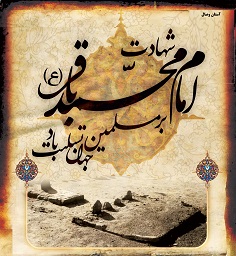 آستان وصال
شهادت
امام محمد باقر (ع)
بر مسلمین
جهان تسلیت باد